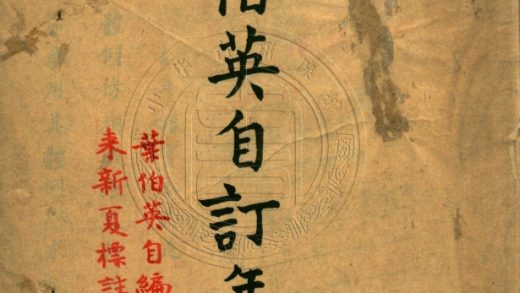 伯英自訂年
葉伯英自編
来新夏標註